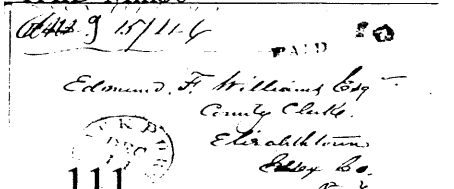 9 15/11-6
PAID
Edmund. F. Williams Esq
County Clerk.
Elizabethtown
Essex Co.
DEC
111